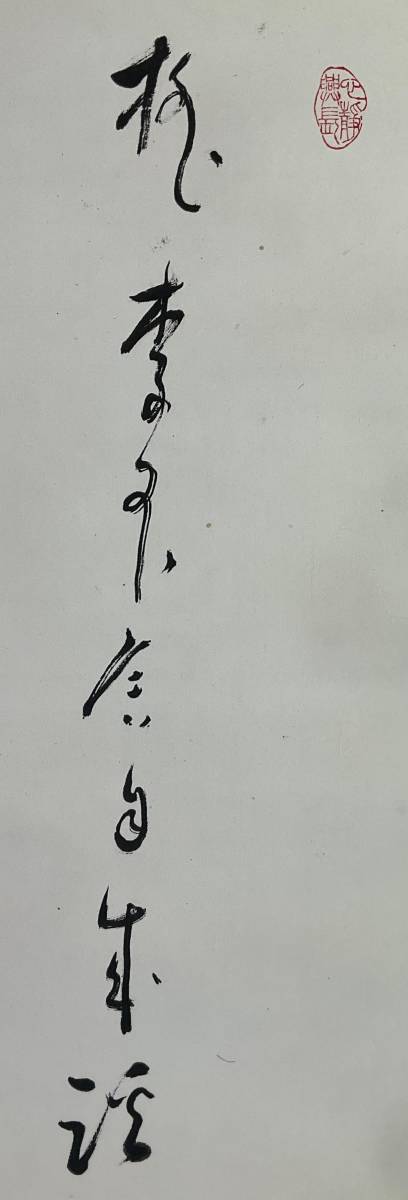 桃李不言自成蹊